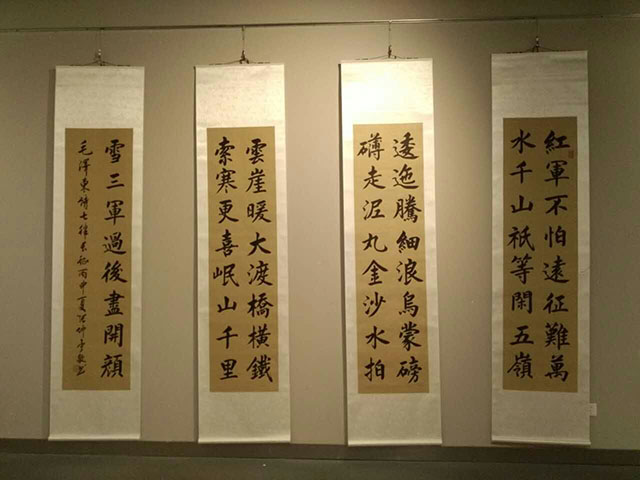 紅軍不怕遠征難萬
水千山祇等閑五嶺
逶迤騰細浪烏蒙磅
礡走泥丸金沙水拍
雲崖暖大渡橋橫鐵
索寒更喜岷山千里
雪三軍過後盡開顏
毛澤東詩七律長征丙申夏